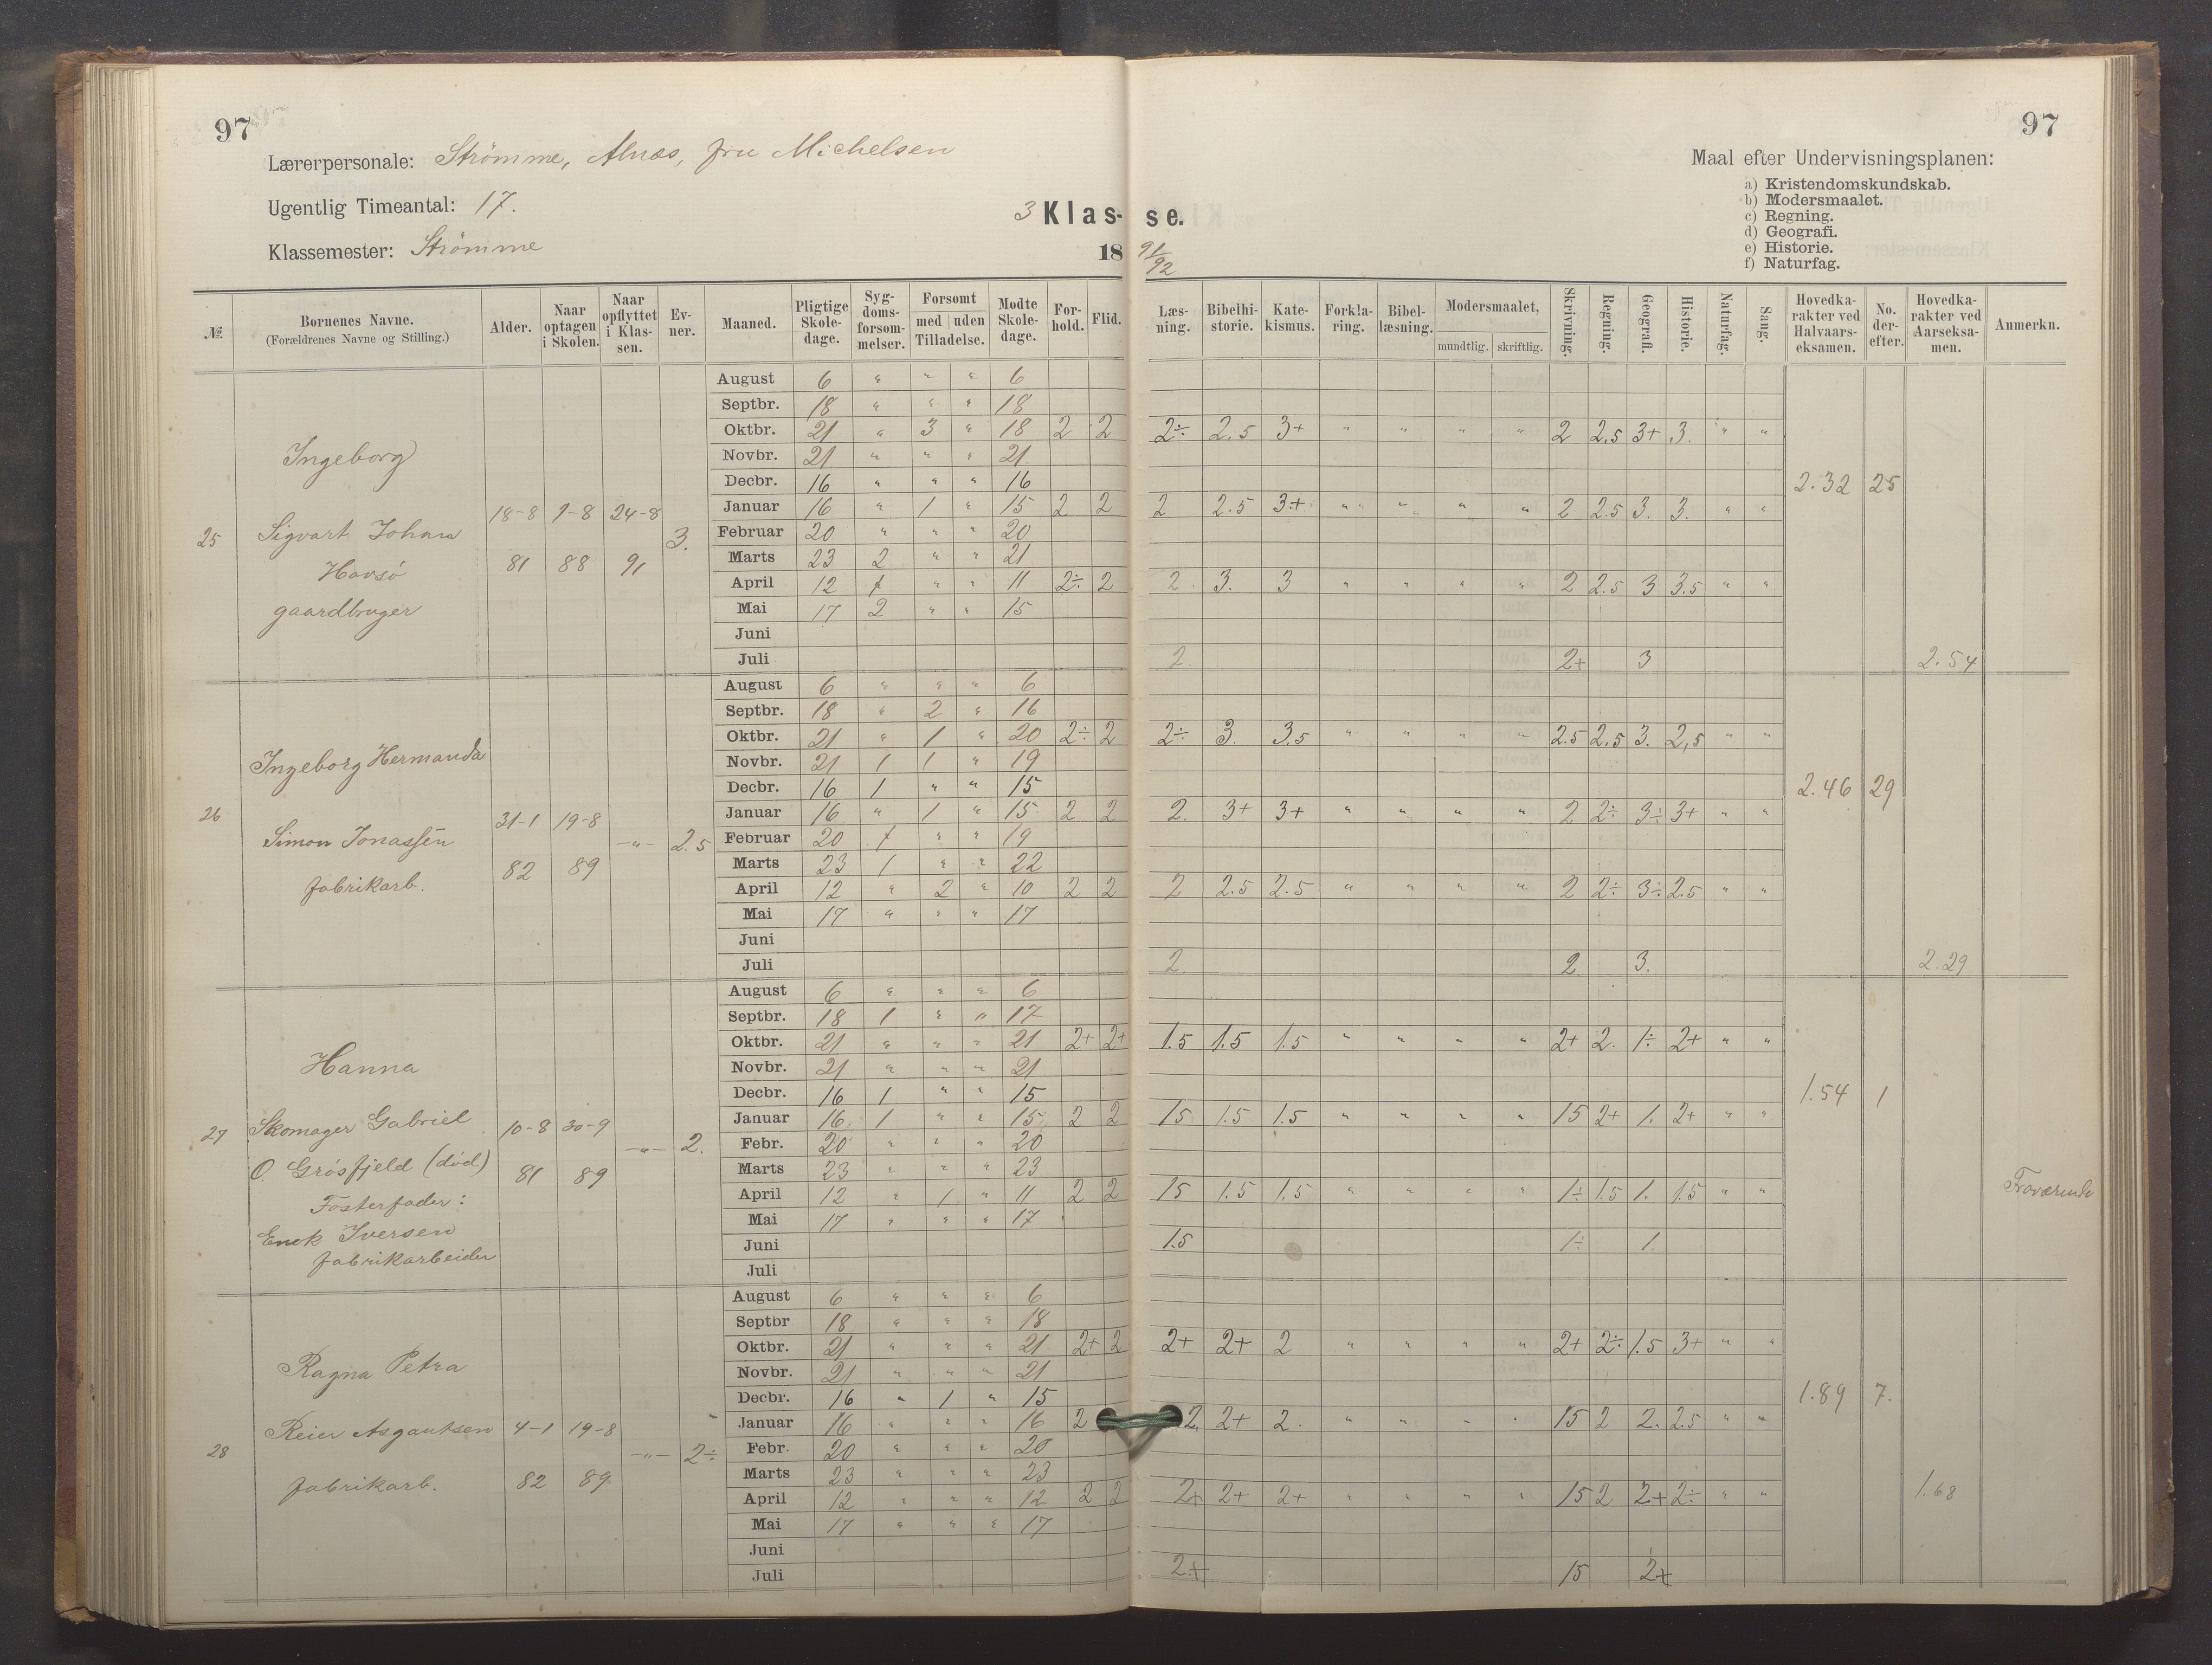 97
97
Lærerpersonale: Strömme, Alnæs, fru Michelsen
Ugentlig Timeantal: 17.
Klassemester: Strömme
3 Klas- se.
18 91/92
Maal efter Undervisningsplanen:
a) Kristendomskundskab.
b) Modersmaalet.
c) Regning.
d) Geografi.
e) Historie.
f) Naturfag.
№ | Bornenes Navne. (Forældrenes Navne og Stilling.) | Alder. | Naar optagen i Skolen. | Naar opflyttet i Klassen. | Ev-ner. | Maaned. | Pligtige Skole-dage. | Syg-doms-forsom-melser. | Forsomt med uden Tilladelse. | Modte Skole-dage. | For-hold. | Flid. | Læs-ning. | Bibelhi-storie. | Kate-kismus. | Forkla-ring. | Bibel-læsning. | Modersmaalet, mundtlig. skriftlig. | Skrivning. | Regning. | Geografi. | Historie. | Naturfag. | Sang. | Hovedka-rakter ved Halvaars-eksamen. | No. der-efter. | Hovedka-rakter ved Aarseksa-men. | Anmerkn.
25
Ingeborg
Sigvart Johan
Havsö
gaardbruger
18-8 81
1-8 88
24-8 91
3.
August 6 " " " 6
Septbr. 18 " " " 18
Oktbr. 21 " 3 " 18 2 2 2÷ 2.5 3+ " " " " 2 2.5 3+ 3. " "
Novbr. 21 " " " 21
Decbr. 16 " " " 16
2.32 25
Januar 16 " 1 " 15 2 2 2 2.5 3+ " " " " 2 2.5 3. 3. " "
Februar 20 " " " 20
Marts 23 2 " " 21
April 12 1 " " 11 2÷ 2 2 3. 3 " " " " 2 2.5 3 3.5 " "
Mai 17 2 " " 15
Juni
Juli 2 2+ 3 2.54
26
Ingeborg Hermanda
Simon Jonassen
fabrikarb.
31-1 82
19-8 89
-"-
2.5
August 6 " " " 6
Septbr. 18 " 2 " 16
Oktbr. 21 " 1 " 20 2÷ 2 2÷ 3. 3.5 " " " " 2.5 2.5 3. 2,5 " "
Novbr. 21 1 1 " 19
Decbr. 16 1 " " 15
2.46 29
Januar 16 " 1 " 15 2 2 2. 3+ 3+ " " " " 2 2÷ 3÷ 3+ " "
Februar 20 1 " " 19
Marts 23 1 " " 22
April 12 " 2 " 10 2 2 2 2.5 2.5 " " " " 2 2÷ 3÷ 2.5 " "
Mai 17 " " " 17
Juni
Juli 2 2 3. 2.29
27
Hanna
Skomager Gabriel
O. Grösfjeld (död)
Fosterfader:
Enek Iversen
fabrikarbeider
10-8 81
30-9 89
-"-
2.
August 6 " " " 6
Septbr. 18 1 " " 17
Oktbr. 21 " " " 21 2+ 2+ 1.5 1.5 1.5 " " " " 2+ 2. 1÷ 2+ " "
Novbr. 21 " " " 21
Decbr. 16 1 " " 15
1.54 1
Januar 16 1 " " 15 2 2 15 1.5 1.5 " " " " 15 2+ 1. 2+ " "
Febr. 20 " " " 20
Marts 23 " " " 23
April 12 " 1 " 11 2 2 15 1.5 1.5 " " " " 1÷ 1.5 1. 1.5 " "
Fraværende
Mai 17 " " " 17
Juni 1.5 1÷ 1.
Juli
28
Ragna Petra
Reier Asgautsen
fabrikarb.
4-1 82
19-8 89
-"-
2÷
August 6 " " " 6
Septbr 18 " " " 18
Oktbr. 21 " " " 21 2+ 2 2+ 2+ 2 " " " " 2+ 2÷ 1.5 3+ " "
Novbr. 21 " " " 21
Decbr. 16 " 1 " 15
1.89 7.
Januar 16 " " " 16 2 2. 2+ 2. " " " " 15 2 2. 2.5 " "
Febr. 20 " " " 20
Marts 23 " " " 23
April 12 " " " 12 2 2 2+ 2+ 2+ " " " " 15 2 2+ 2÷ " "
1.68
Mai 17 " " " 17
Juni
Juli 2+ 15 2+